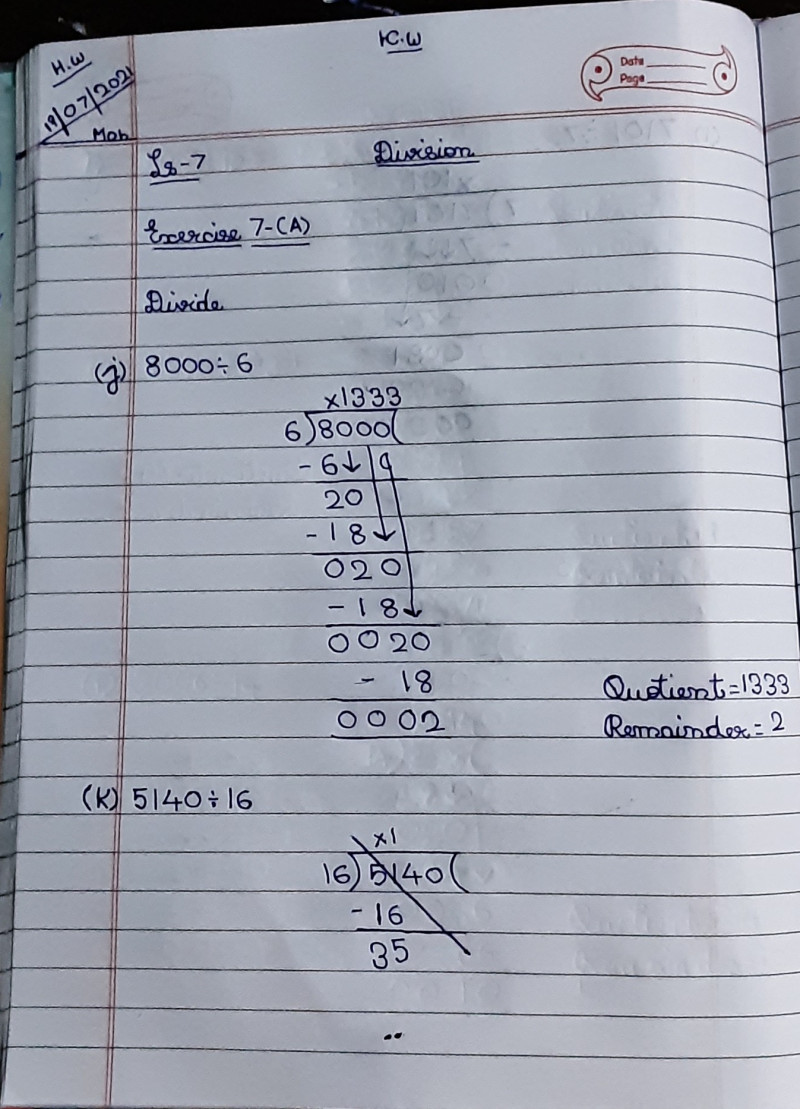 H.W
K.W
19/07/2021
Mon
Date
Page
Ls-7 Division
Exercise 7-(A)
Divide
(j) 8000÷6
x1333
6)8000(
-6↓
20
-18
020
-18
0020
- 18
0002
Quotient=1333
Remainder=2
(K) 5140÷16
x1
16)5140(
-16
35